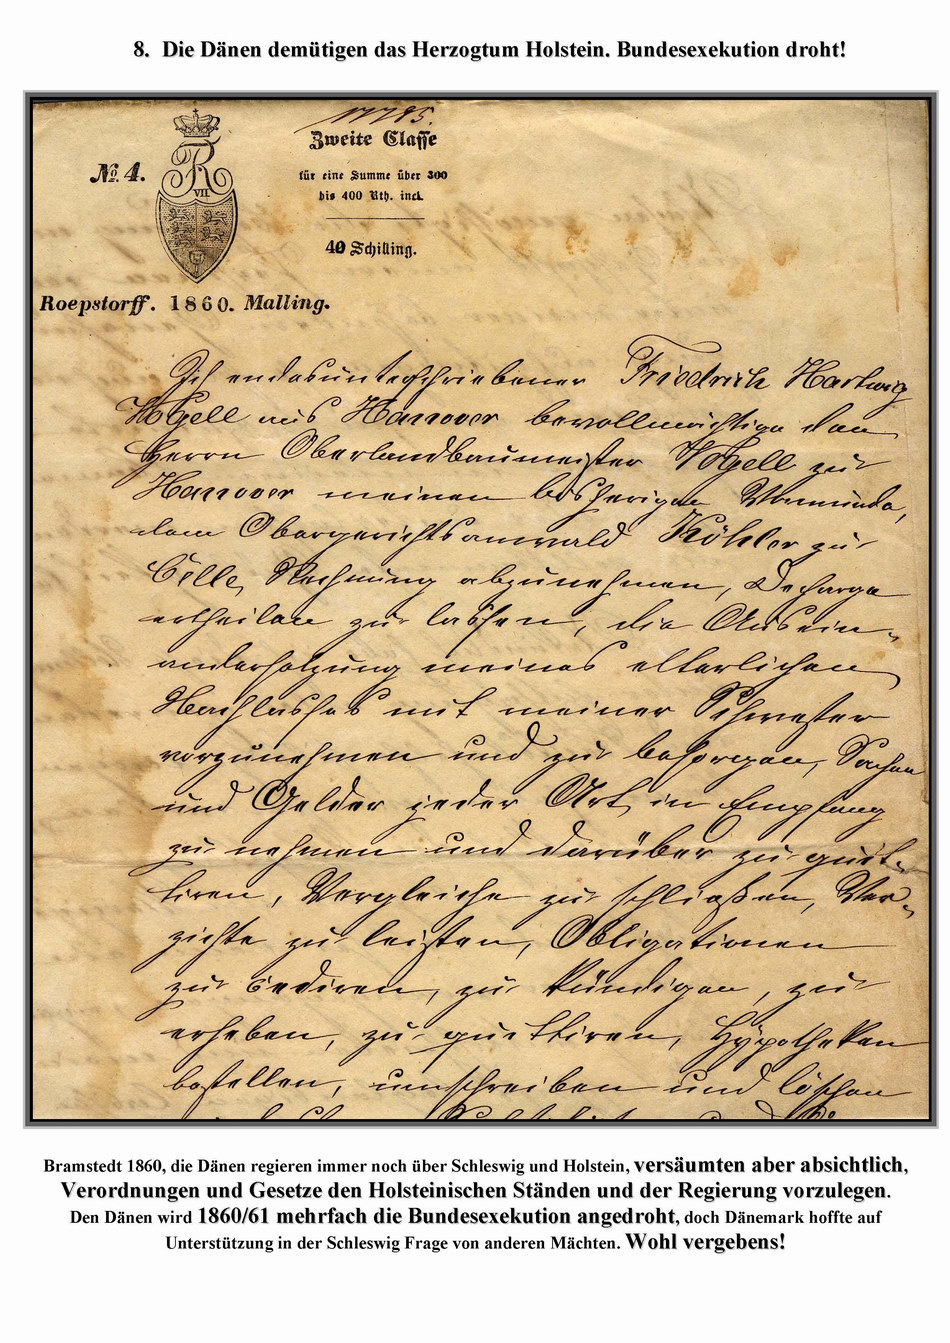 8. Die Dänen demütigen das Herzogtum Holstein. Bundesexekution droht!
17785.
Zweite Classe
No. 4.
für eine Summe über 300
bis 400 Rth. incl.
VII.
40 Schilling.
Roepstorff. 1860. Malling.
Ich endesunterschriebener Friedrich Hartwig
Vogell aus Hannover bevollmächtige den
Herrn Oberlandbaumeister Vogell zu
Hannover meinem bisherigen Vormunde,
dem Obergerichtsanwald Köhler zu
Celle, Rechnung abzunehmen, Decharge
ertheilen zu lassen, die Ausein-
andersetzung meines elterlichen
Nachlasses mit meiner Schwester
vorzunehmen und zu besorgen, Sachen
und Gelder jeder Art in Empfang
zu nehmen und darüber zu quit-
tiren, Vergleiche zu schließen, Ver-
zichte zu leisten, Obligationen
zu cediren, zu kündigen, zu
erheben, zu quittiren, Hypotheken
bestellen, umschreiben und löschen
Bramstedt 1860, die Dänen regieren immer noch über Schleswig und Holstein, versäumten aber absichtlich,
Verordnungen und Gesetze den Holsteinischen Ständen und der Regierung vorzulegen.
Den Dänen wird 1860/61 mehrfach die Bundesexekution angedroht, doch Dänemark hoffte auf
Unterstützung in der Schleswig Frage von anderen Mächten. Wohl vergebens!